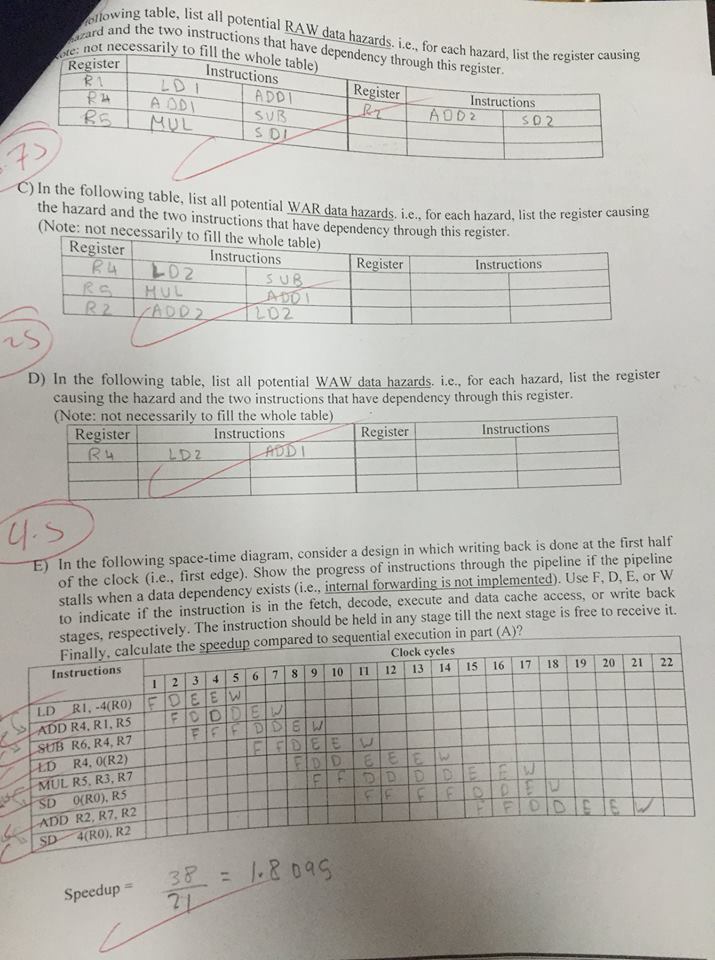 following table, list all potential RAW data hazards. i.e., for each hazard, list the register causing
hazard and the two instructions that have dependency through this register.
not necessarily to fill the whole table)
Register Instructions Register Instructions
R1 LD1 ADD1 R2 ADD2 SD2
R4 ADD1 SUB
R5 MUL SD1
C) In the following table, list all potential WAR data hazards. i.e., for each hazard, list the register causing
the hazard and the two instructions that have dependency through this register.
(Note: not necessarily to fill the whole table)
Register Instructions Register Instructions
R4 LD2 SUB
R5 MUL ADD1
R2 ADD2 LD2
25
D) In the following table, list all potential WAW data hazards. i.e., for each hazard, list the register
causing the hazard and the two instructions that have dependency through this register.
(Note: not necessarily to fill the whole table)
Register Instructions Register Instructions
R4 LD2 ADD1
4.5
E) In the following space-time diagram, consider a design in which writing back is done at the first half
of the clock (i.e., first edge). Show the progress of instructions through the pipeline if the pipeline
stalls when a data dependency exists (i.e., internal forwarding is not implemented). Use F, D, E, or W
to indicate if the instruction is in the fetch, decode, execute and data cache access, or write back
stages, respectively. The instruction should be held in any stage till the next stage is free to receive it.
Finally, calculate the speedup compared to sequential execution in part (A)?
Instructions Clock cycles
1 2 3 4 5 6 7 8 9 10 11 12 13 14 15 16 17 18 19 20 21 22
LD R1, -4(R0) F D E E W
ADD R4, R1, R5 F D D D E W
SUB R6, R4, R7 F F F D D E W
LD R4, 0(R2) F F D E E W
MUL R5, R3, R7 F D D E E E W
SD 0(R0), R5 F F D D D D E E W
ADD R2, R7, R2 F F F F D D E W
SD 4(R0), R2 F F D D E E W
Speedup = 38/21 = 1.8095